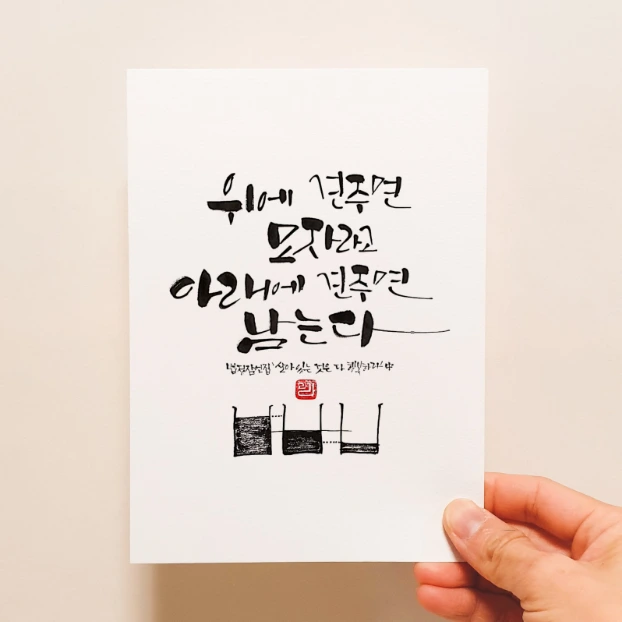 위에 견주면
모자라고
아래에 견주면
남는다
법정잠언집 '살아 있는 것은 다 행복하라' 中